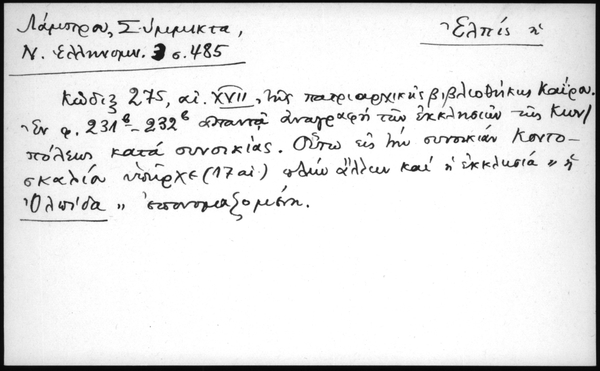 Λάμπρου, Σύμμικτα, Ἐλπίς ἡ
Ν. Ἑλληνομν. 3 σ. 485
Κῶδιξ 275, αἰ. XVII, τῆς πατριαρχικῆς βιβλιοθήκης Καΐρου.
Ἐν φ. 231β-232β ἀπαντᾷ ἀναγραφή τῶν ἐκκλησιῶν τῆς Κων/
πόλεως κατά συνοικίας. Οὕτω εἰς τήν συνοικίαν Κοντο-
σκαλίου ὑπῆρχε (17 αἰ.) πλήν ἄλλων καί ἡ ἐκκλησία „ ἡ
Ὀλπίδα „ ἐπονομαζομένη.